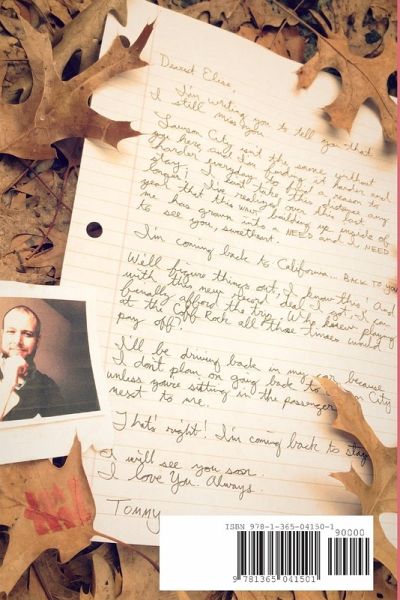 Dearest Elise,
I'm writing you to tell you that
I still miss you.
Lawson City isn't the same without
you here, and I'm finding it harder and
harder everyday to find a reason to
stay. I can't take this distance any
longer; I've realized over this last
year that this want building up inside of
me has grown into a NEED and I NEED
to see you, sweetheart.
I'm coming back to California... BACK TO YOU
We'll figure things out, I know this! And
with this new record deal I got, I can
finally afford the trip. Who knew playing
at the Cliff Rock all those times would
pay off?
I'll be driving back in my car because
I don't plan on going back to City
unless you're sitting in the passenger
next to me.
That's right! I'm coming back to stay
I will see you soon.
I Love You. Always.
Tommy
ISBN 978-1-365-04150-1
90000
9 781365 041501